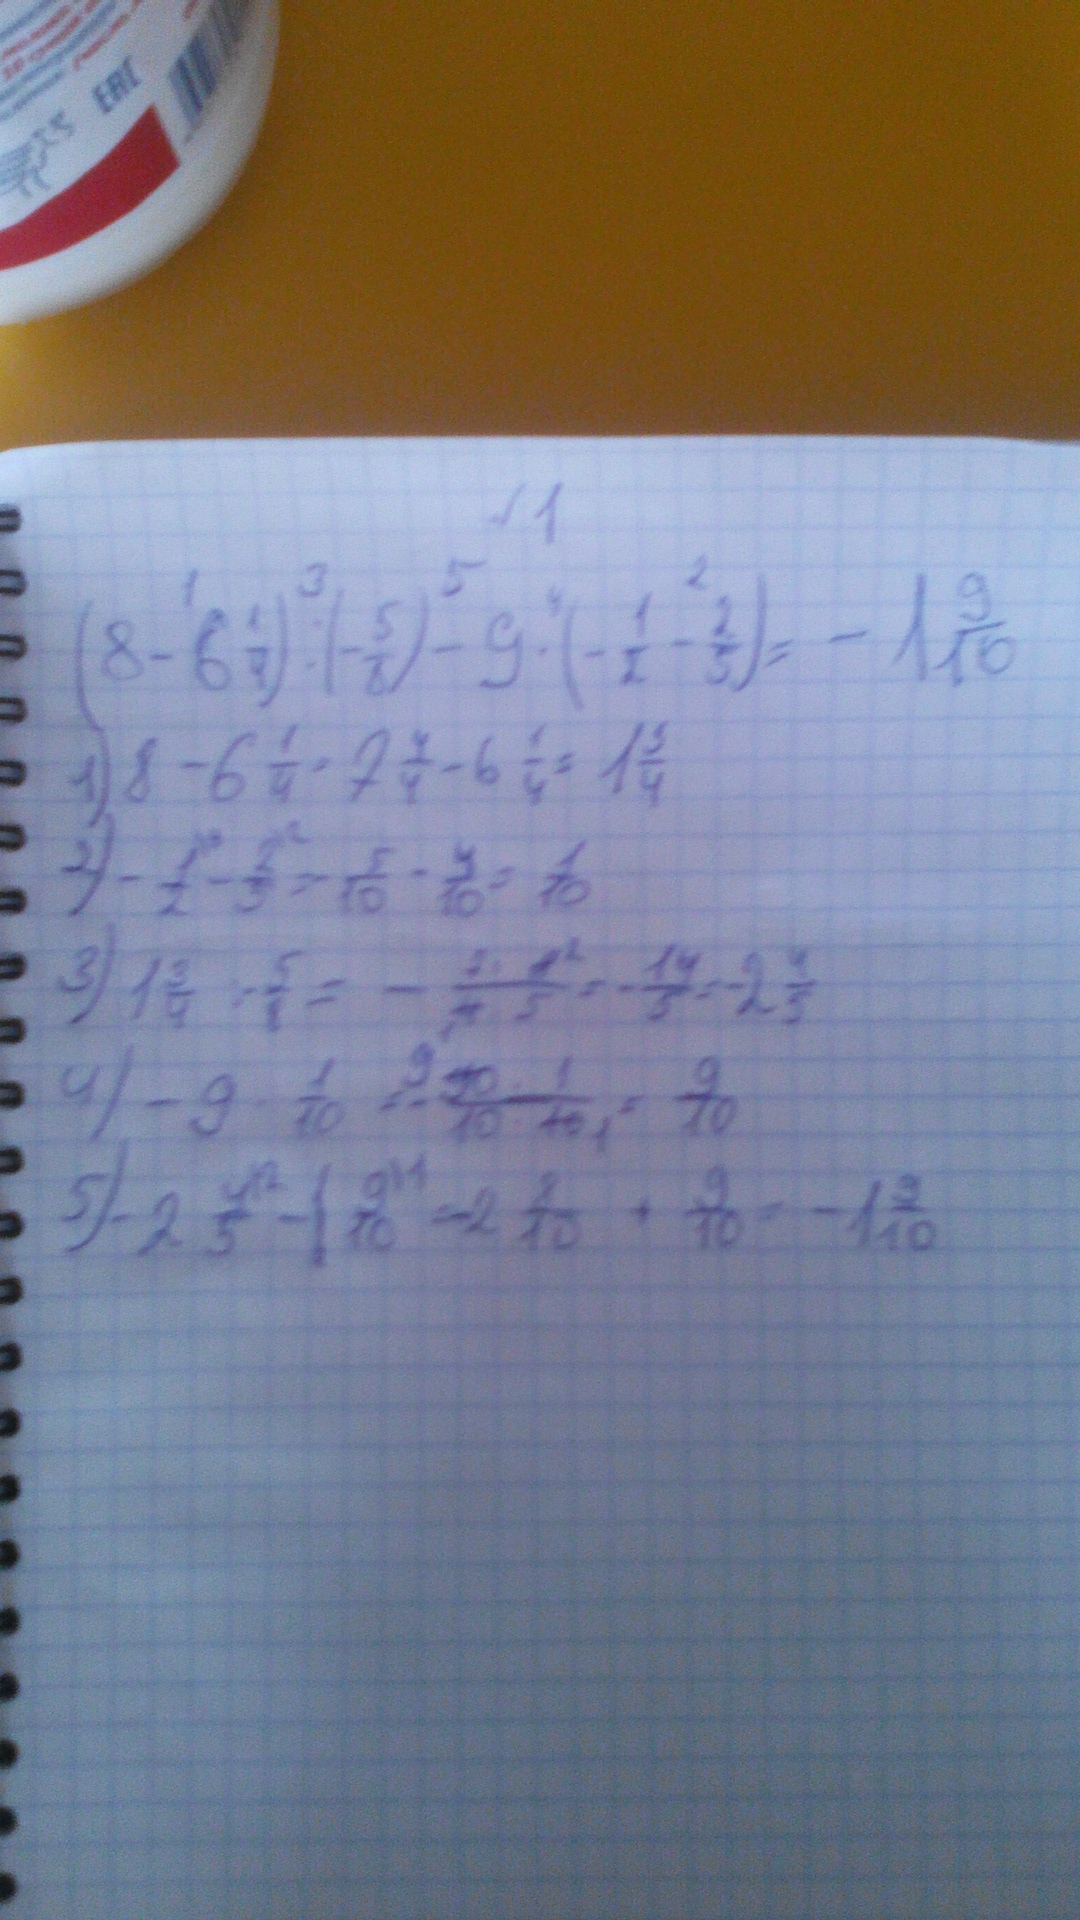 EAC
√1
(8-6 1/4) : (-5/8) - 9 · (-1/2 - 2/5) = -1 9/10
1) 8 - 6 1/4 = 7 4/4 - 6 1/4 = 1 3/4
2) - 1/2 - 2/5 = - 5/10 - 4/10 = 1/10
3) 1 3/4 : 5/8 = - = - 14/5 = -2 4/5
4) - 9 · 1/10 = = 9/10
5) - 2 4/5 - 9/10 = -2 8/10 + 9/10 = -1 9/10